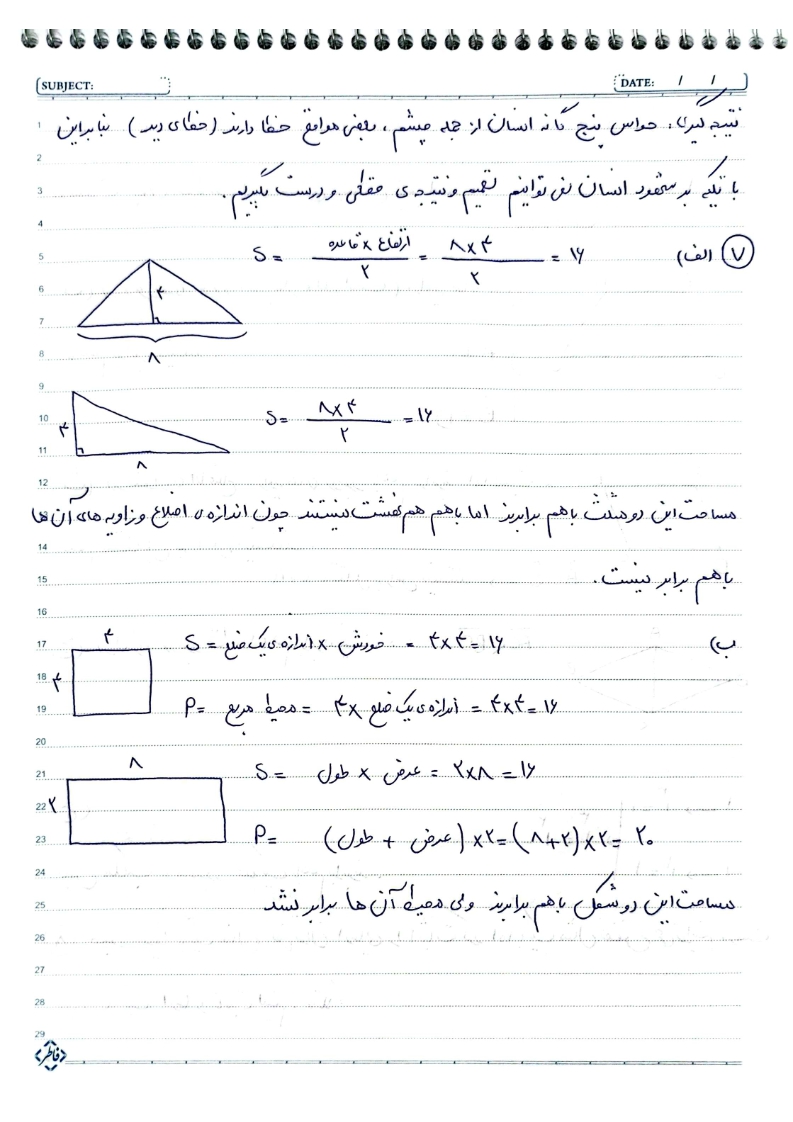 SUBJECT:
DATE: / /
نتیجه گیری: حواس پنج گانه انسان از جمله چشم، بعضی مواقع خطا دارند (خطای دید) بنابراین
با تکیه بر شهود انسان نمی توانیم تصمیم و نتیجه ی منطقی و درست بگیریم.
۷ الف) S = ارتفاع × قاعده / ۲ = ۸×۴ / ۲ = ۱۶
۴
۸
S = ۸×۴ / ۲ = ۱۶
۴
۸
مساحت این دو مثلث باهم برابرند اما باهم هم نهشت نیستند چون اندازه ی اضلاع و زاویه های آن ها
باهم برابر نیست.
ب) S = اندازه ی یک ضلع × خودش = ۴×۴ = ۱۶
۴
۴
P = محیط مربع = ۴× اندازه ی یک ضلع = ۴×۴ = ۱۶
S = طول × عرض = ۲×۸ = ۱۶
۸
۲
P = (طول + عرض) ×۲ = (۸+۲)×۲ = ۲۰
مساحت این دو شکل باهم برابرند ولی محیط آن ها برابر نشد
1
2
3
4
5
6
7
8
9
10
11
12
14
15
16
17
18
19
20
21
22
23
24
25
26
27
28
29
فاطر